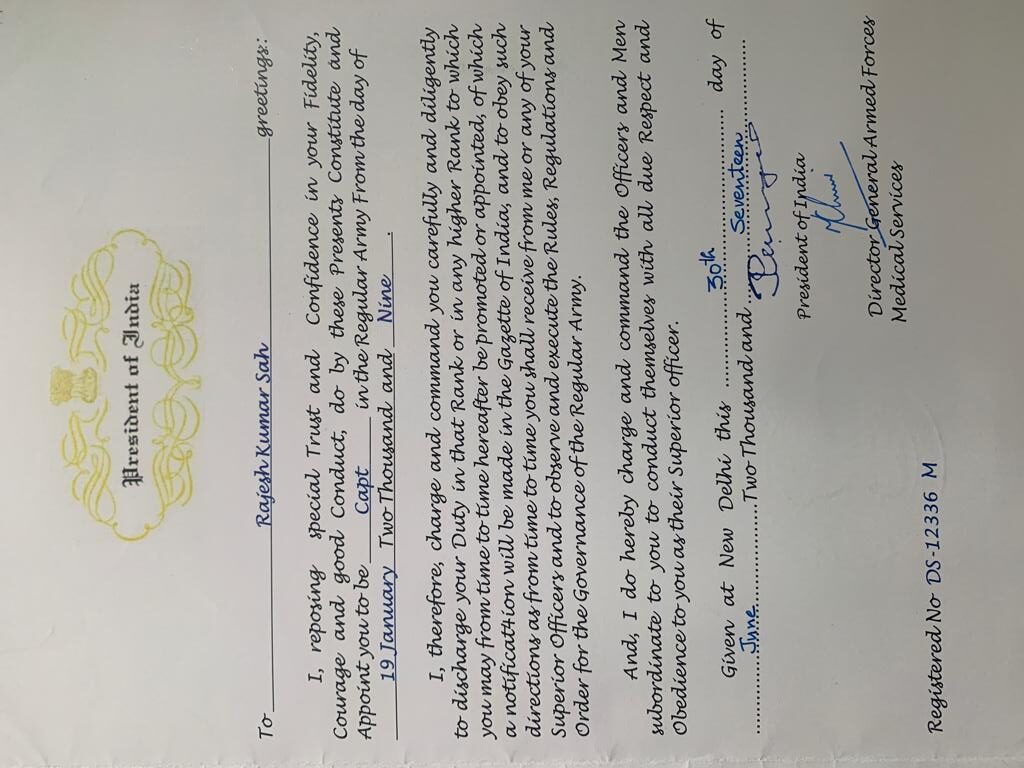 President of India
To Rajesh Kumar Sah greetings:
I, reposing special Trust and Confidence in your Fidelity,
Courage and good Conduct, do by these Presents Constitute and
Appoint you to be Capt in the Regular Army From the day of
19 January Two Thousand and Nine.
I, therefore, charge and command you carefully and diligently
to discharge your Duty in that Rank or in any higher Rank to which
you may from time to time hereafter be promoted or appointed, of which
a notification will be made in the Gazette of India, and to obey such
directions as from time to time you shall receive from me or any of your
Superior Officers and to observe and execute the Rules, Regulations and
Order for the Governance of the Regular Army.
And, I do hereby charge and command the Officers and Men
subordinate to you to conduct themselves with all due Respect and
Obedience to you as their Superior officer.
Given at New Delhi this 30th day of
June Two Thousand and Seventeen
President of India
Director General Armed Forces
Medical Services
Registered No DS-12336 M